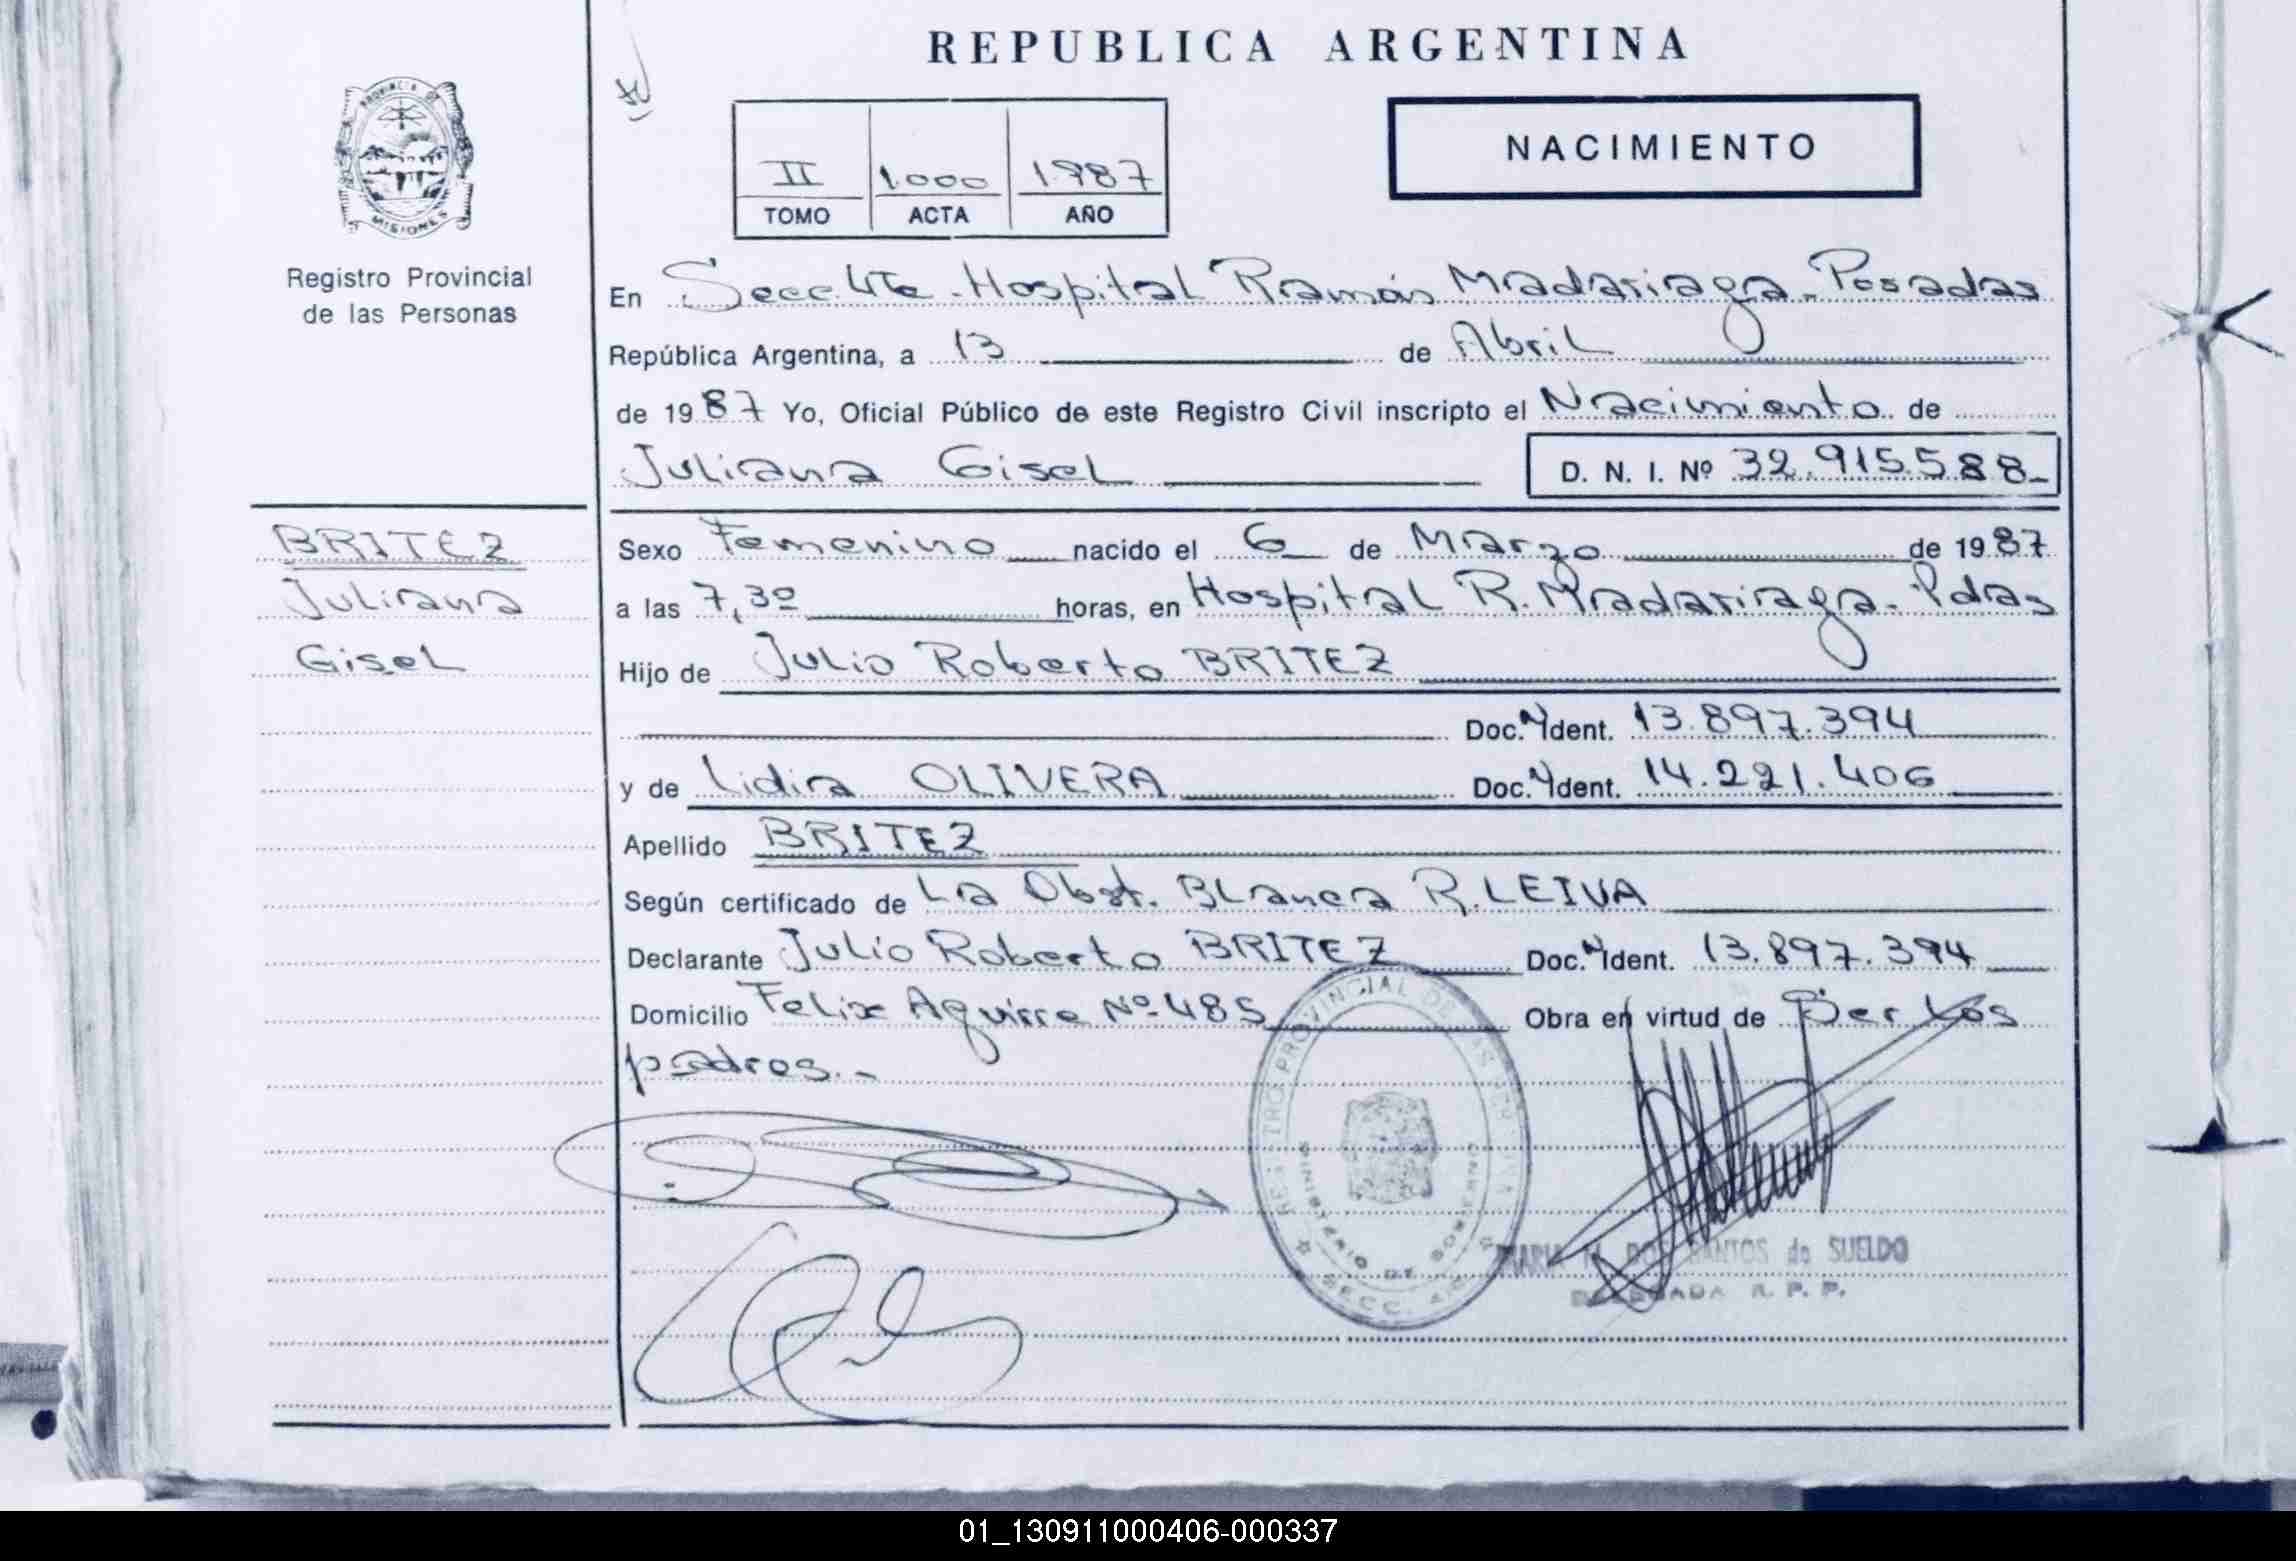 REPUBLICA ARGENTINA
PROVINCIA DE
MISIONES
Registro Provincial
de las Personas
II 1.000 1.987
TOMO ACTA AÑO
NACIMIENTO
En Secc. 4ta. Hospital Ramón Madariaga - Posadas
República Argentina, a 13 de Abril
de 1987 Yo, Oficial Público de este Registro Civil inscripto el Nacimiento de
Juliana Gisel D. N. I. Nº 32.915.588-
BRITEZ
Juliana
Gisel
Sexo Femenino nacido el 6 de Marzo de 1987
a las 7,30 horas, en Hospital R. Madariaga - Pdas
Hijo de Julio Roberto BRITEZ
Doc. Ident. 13.897.394
y de Lidia OLIVERA Doc. Ident. 14.221.406
Apellido BRITEZ
Según certificado de La Obst. Blanca R. LEIVA
Declarante Julio Roberto BRITEZ Doc. Ident. 13.897.394
Domicilio Felix Aguirre Nº 485 Obra en virtud de Ser los
padres.-
REGISTRO PROVINCIAL DE LAS PERSONAS
MINISTERIO DE GOBIERNO
SECC. 4ta
MARIA DOS SANTOS de SUELDO
DELEGADA R. P. P.
01_130911000406-000337